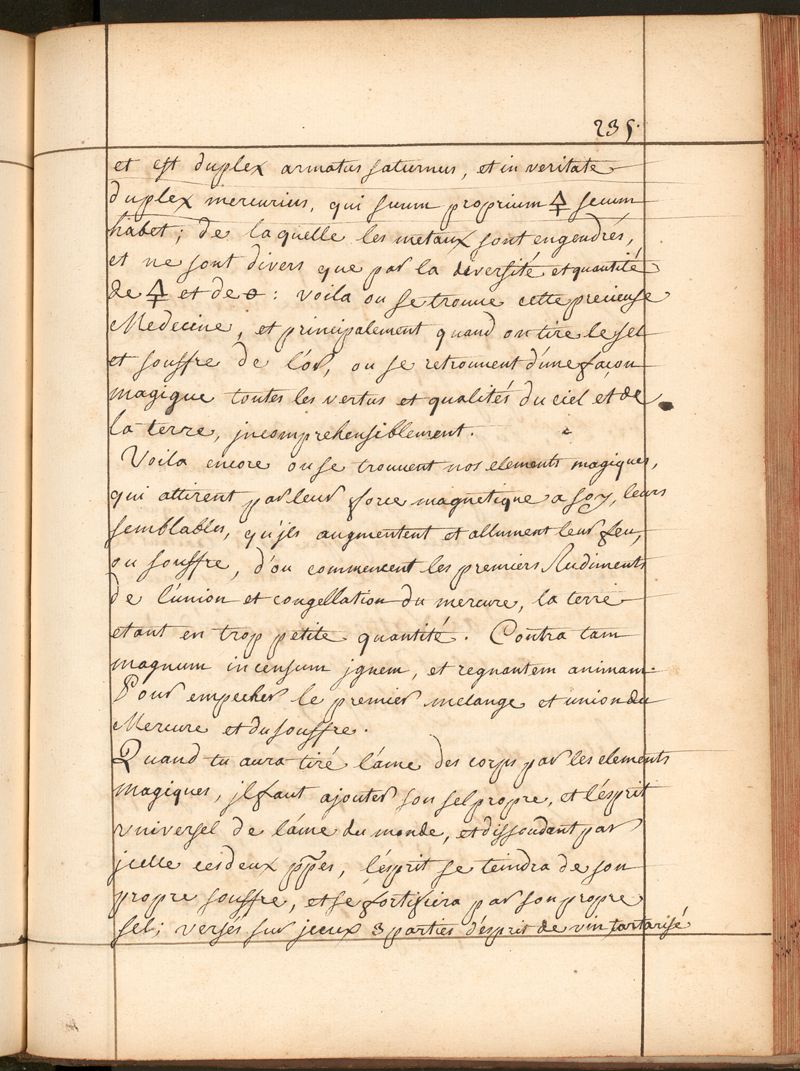 235.
et est duplex armatus saturnus, et in veritate
duplex mercurius, qui suum proprium 🜍 secum
habet; de laquelle les metaux sont engendrés,
et ne sont divers que par la diversité et quantité
de 🜍 et de 🜔 : voila ou se trouve cette precieuse
Medecine, et principalement quand on tire le sel
et souffre de l'or, ou se retrouvent d'une façon
magique toutes les vertus et qualités du ciel et de
la terre, jncomprehensiblement.
Voila encore ou se trouvent nos elements magiques,
qui attirent par leur force magnetique a soy, leurs
semblables, qu'jls augmentent et allument leur feu,
ou souffre, d'ou commencent les premiers Rudiments
de l'union et congellation du mercure, la terre
etant en trop petite quantité. Contra tam
magnum incensum jgnem, et regnantem animam.
Pour empecher le premier melange et union du
Mercure et du souffre.
Quand tu aura tiré l'ame des corps par les elements
magiques, jl faut ajouter son sel propre, et l'esprit
vniversel de l'ame du monde, et dissoudant par
jcelle ces deux pp̃es, l'esprit se teindra de son
propre souffre, et se fortifiera par son propre
sel; verses sur jceux 3 parties d'esprit de vin tartarisé